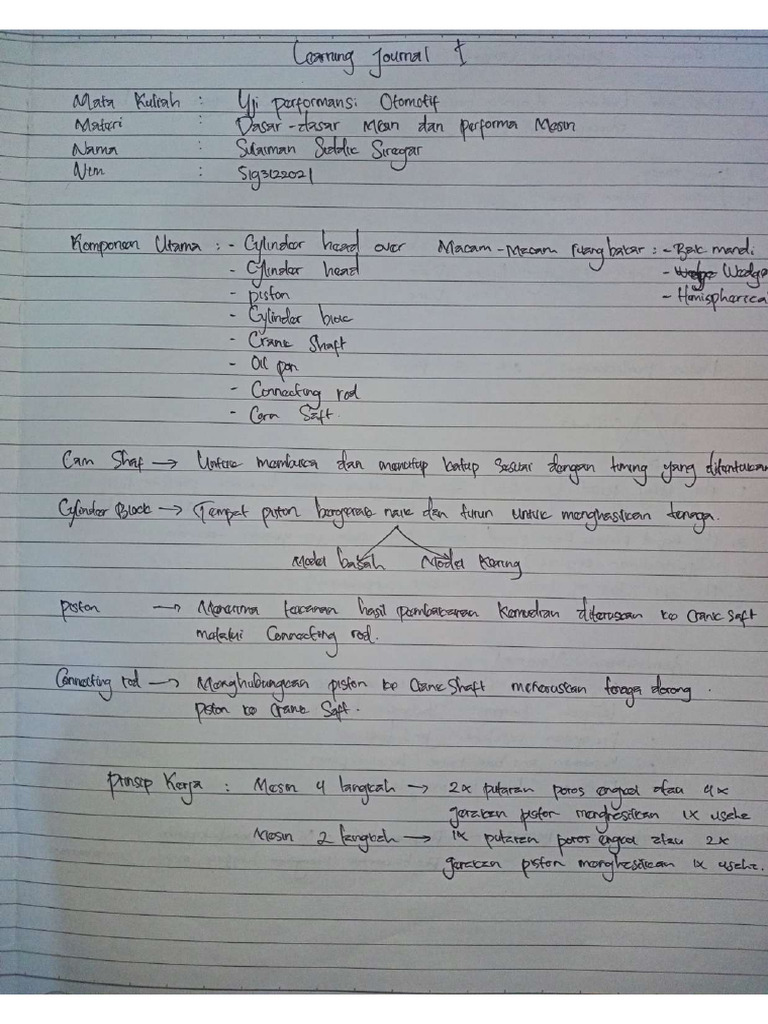 Learning Journal I
Mata Kuliah : Uji performansi Otomotif
Materi : Dasar-dasar Mesin dan performa Mesin
Nama : Sulaiman Siddic Siregar
Nim : 5193122021
Komponen Utama : - Cylinder head over Macam-Macam ruang bakar : - Bak mandi
- Cylinder head - Wedge
- piston - Hemispherical
- Cylinder bloc
- Crank Shaft
- Oil pan
- Connecting rod
- Cam Saft.
Cam Shaf → Untuk membuka dan menutup katup sesuai dengan timing yang ditentukan
Cylinder Block → Tempat piston bergerak naik dan turun untuk menghasilkan tenaga.
Model basah Model Kering
piston → Menerima tekanan hasil pembakaran kemudian diteruskan ke Crank Saft
melalui Connecting rod.
Connecting rod → Menghubungkan piston ke Crank Shaft meneruskan tenaga dorong
piston ke Crank Saft.
Prinsip Kerja : Mesin 4 langkah → 2x putaran poros engkol atau 4x
gerakan piston menghasilkan 1x usaha
Mesin 2 langkah → 1x putaran poros engkol atau 2x
gerakan piston menghasilkan 1x usaha.